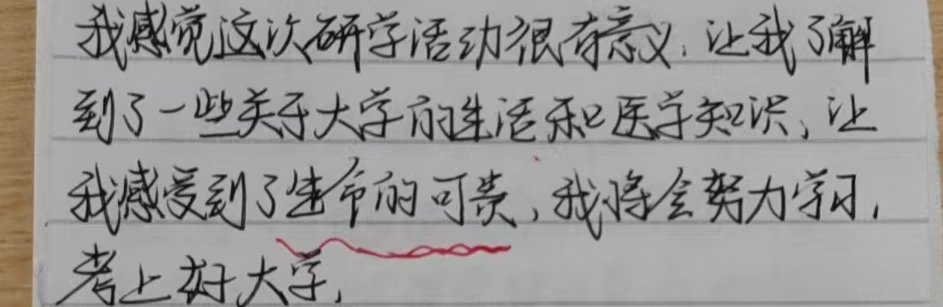 我感觉这次研学活动很有意义，让我了解
到了一些关于大学的生活和医学知识，让
我感受到了生命的可贵，我将会努力学习，
考上好大学，